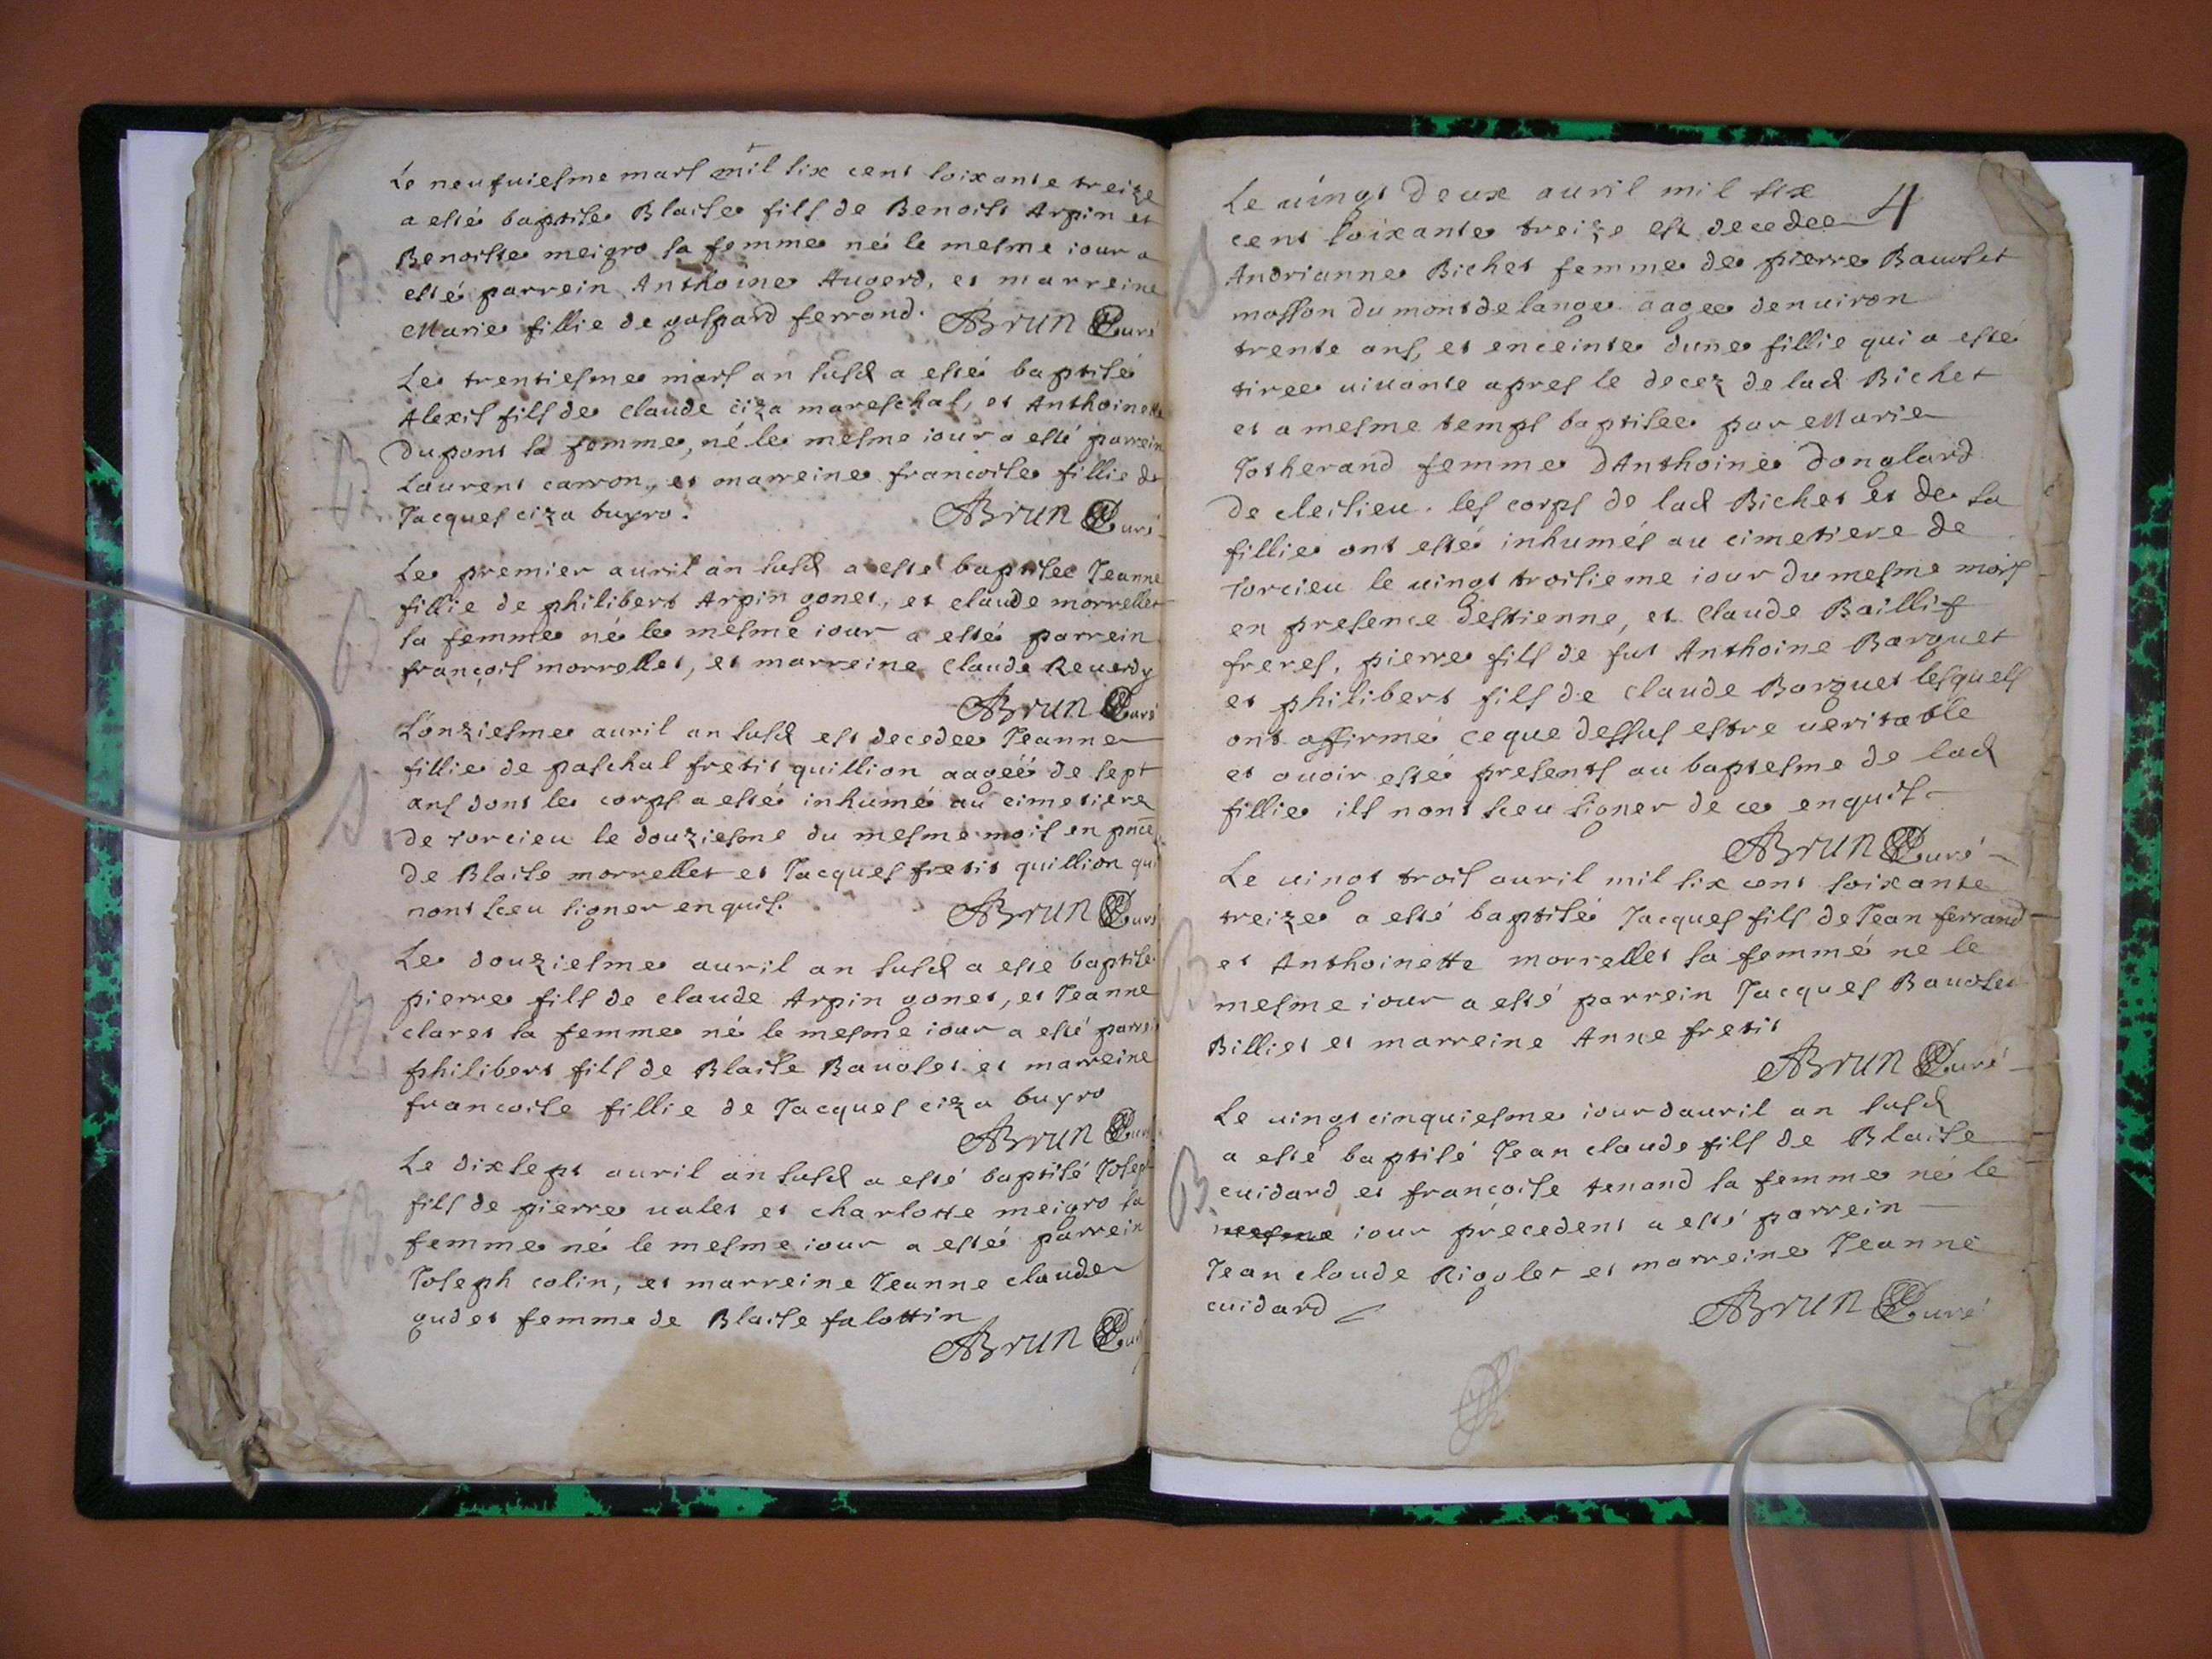 Le neufuiesme mars mil six cent soixante treize
a esté baptise Blaise fils de Benoist Arpin et
B. Benoiste meigro sa femme né le mesme iour a
esté parrein Anthoine Augerd, et marreine
Marie fillie de gaspard ferrand. ABrun Curé
Le trentiesme mars an susd a esté baptisé
Alexis fils de claude ciza mareschal, et Anthoinette
B. Dupont sa femme, né le mesme iour a esté parrein
Laurent carron, et marreine francoise fillie de
Jacques ciza buyro. ABrun Curé
Le premier auril an susd a esté baptisee Jeanne
fillie de philibert Arpin gonet, et claude morrellet
B. sa femme né le mesme iour a esté parrein
françois morrellet, et marreine claude Reuerdy
ABrun Curé
L'onziesme auril an susd est decedee Jeanne
fillie de paschal fretit quillion aagéé de sept
D. ans dont le corps a esté inhumé au cimetiere
de torcieu le douziesme du mesme mois en pnce
de Blaise morrellet et Jacques fretit quillion qui
nont sceu signer enquis. ABrun Curé
Le douziesme auril an susd a esté baptise
pierre fils de claude Arpin gonet, et Jeanne
B. claret sa femme né le mesme iour a esté parrei
philibert fils de Blaise Bauolet et marreine
francoise fillie de Jacques ciza buyro
ABrun Curé
Le dixsept auril an susd a esté baptisé Joseph
B. fils de pierre ualet et charlotte meigro sa
femme né le mesme iour a esté parrein
Joseph colin, et marreine Jeanne claude
gudet femme de Blaise falottin
ABrun Curé
4
Le uingt deux auril mil six
cent soixante treize est decedee
D Andrianne Bichet femme de pierre Bauolet
masson du mont de lange aagee denuiron
trente ans, et enceinte dune fillie qui a esté
tiree uiuante apres le decez de lad Bichet
et a mesme temps baptisee par Marie
Jotherand femme dAnthoine Donglard
de cleisieu. les corps de lad Bichet et de sa
fillie ont esté inhumés au cimetiere de
torcieu le uingt troisieme iour du mesme mois
en presence destienne, et claude Baillif
freres, pierre fils de fut Anthoine Barquet
et philibert fils de claude Barquet lesquels
ont affirmé ce que dessus estre ueritable
et auoir esté presents au baptesme de lad
fillie ils nont sceu signer de ce enquis
ABrun Curé
Le uingt trois auril mil six cent soixante
treize a esté baptisé Jacques fils de Jean ferrand
B. et Anthoinette morrellet sa femmé ne le
mesme iour a esté parrein Jacques Bauolet
Billiet et marreine Anne fretit
ABrun Curé
Le uingtcinquiesme iour dauril an susd
a esté baptisé Jean claude fils de Blaise
B. cuidard et francoise tenand sa femme né le
mesme iour précedent a esté parrein
Jean claude Rigolet et marreine Jeanne
cuidard ABrun Curé